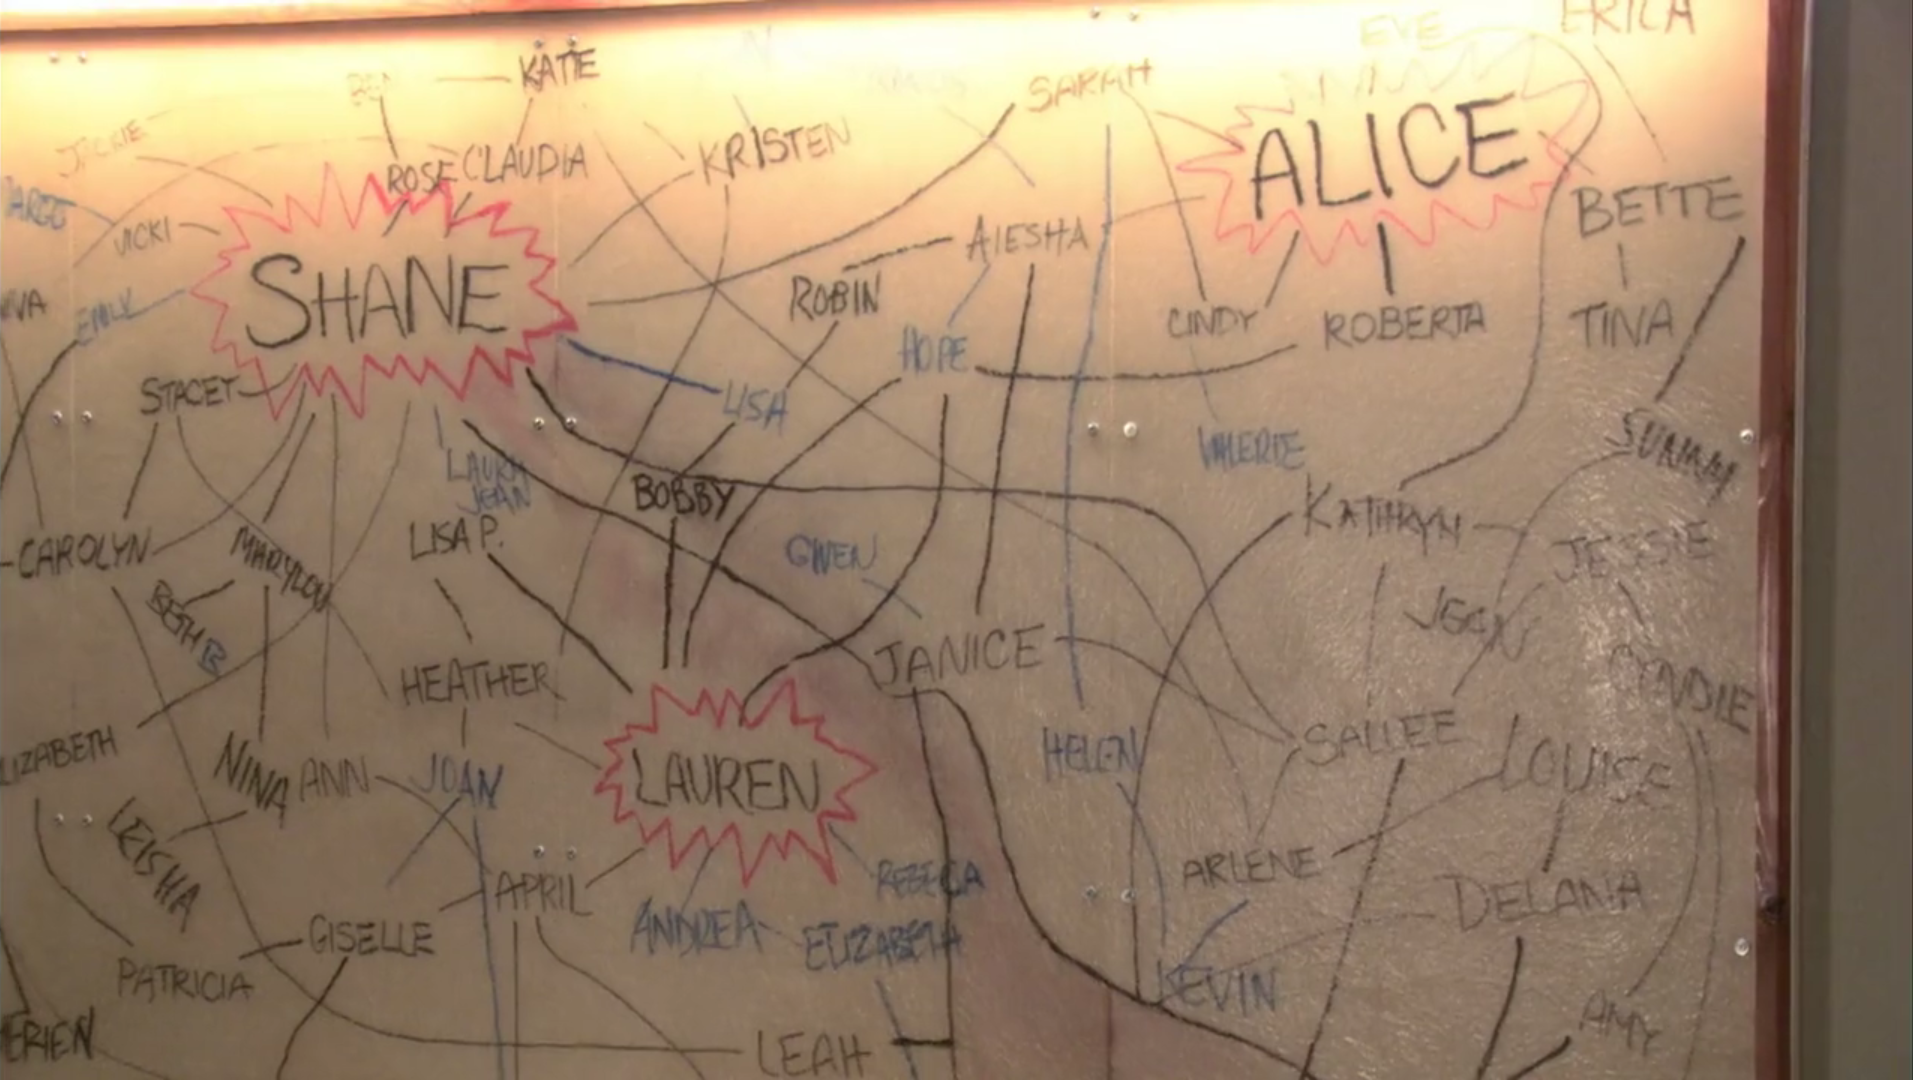 ERICA
EVE
KATIE
BEN
SARAH
ALICE
JACKIE
KRISTEN
ROSE
CLAUDIA
BETTE
VICKI
AIESHA
SHANE
ROBIN
EMILY
CINDY
ROBERTA
TINA
HOPE
STACEY
LISA
VALERIE
SUNNY
LAURA
JEAN
BOBBY
KATHRYN
LISA P.
CAROLYN
MARYLOU
GWEN
JESSIE
BETH B
JEAN
JANICE
HEATHER
CYNDIE
SALLEE
LIZABETH
HELEN
NINA
ANN
JOAN
LAUREN
LOUISE
LEISHA
ARLENE
REBECCA
APRIL
DELANA
ANDREA
ELIZABETH
GISELLE
PATRICIA
KEVIN
AMY
ERIEN
LEAH